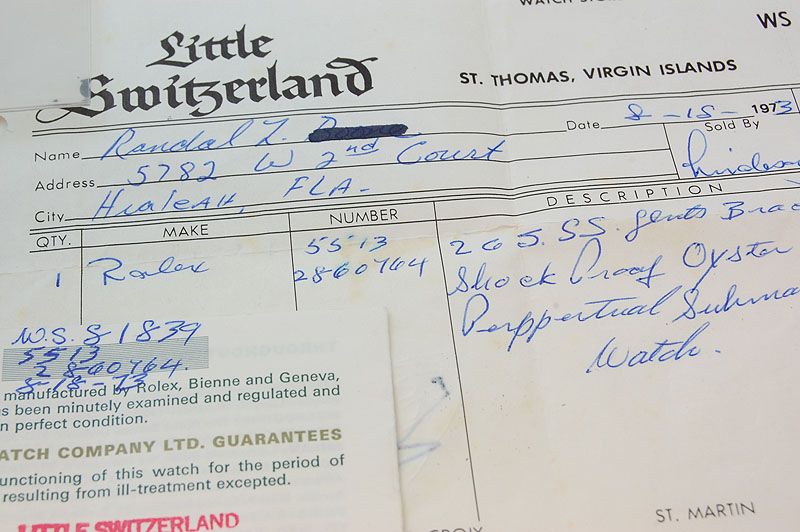 WATCH
WS
Little
Switzerland
ST. THOMAS, VIRGIN ISLANDS
Name Randal L.
Date 8-18-1973
Address 5782 W 2nd Court
Sold By
City Hialeah, FLA-
QTY. MAKE NUMBER DESCRIPTION
1 Rolex 5513
2860764
265. SS. gents Brac
Shock Proof Oyster
Perppertual Subma
Watch.
W.S. 81839
5513
2860764.
8-18-73
manufactured by Rolex, Bienne and Geneva,
s been minutely examined and regulated and
n perfect condition.
ATCH COMPANY LTD. GUARANTEES
unctioning of this watch for the period of
resulting from ill-treatment excepted.
LITTLE SWITZERLAND
CROIX
ST. MARTIN